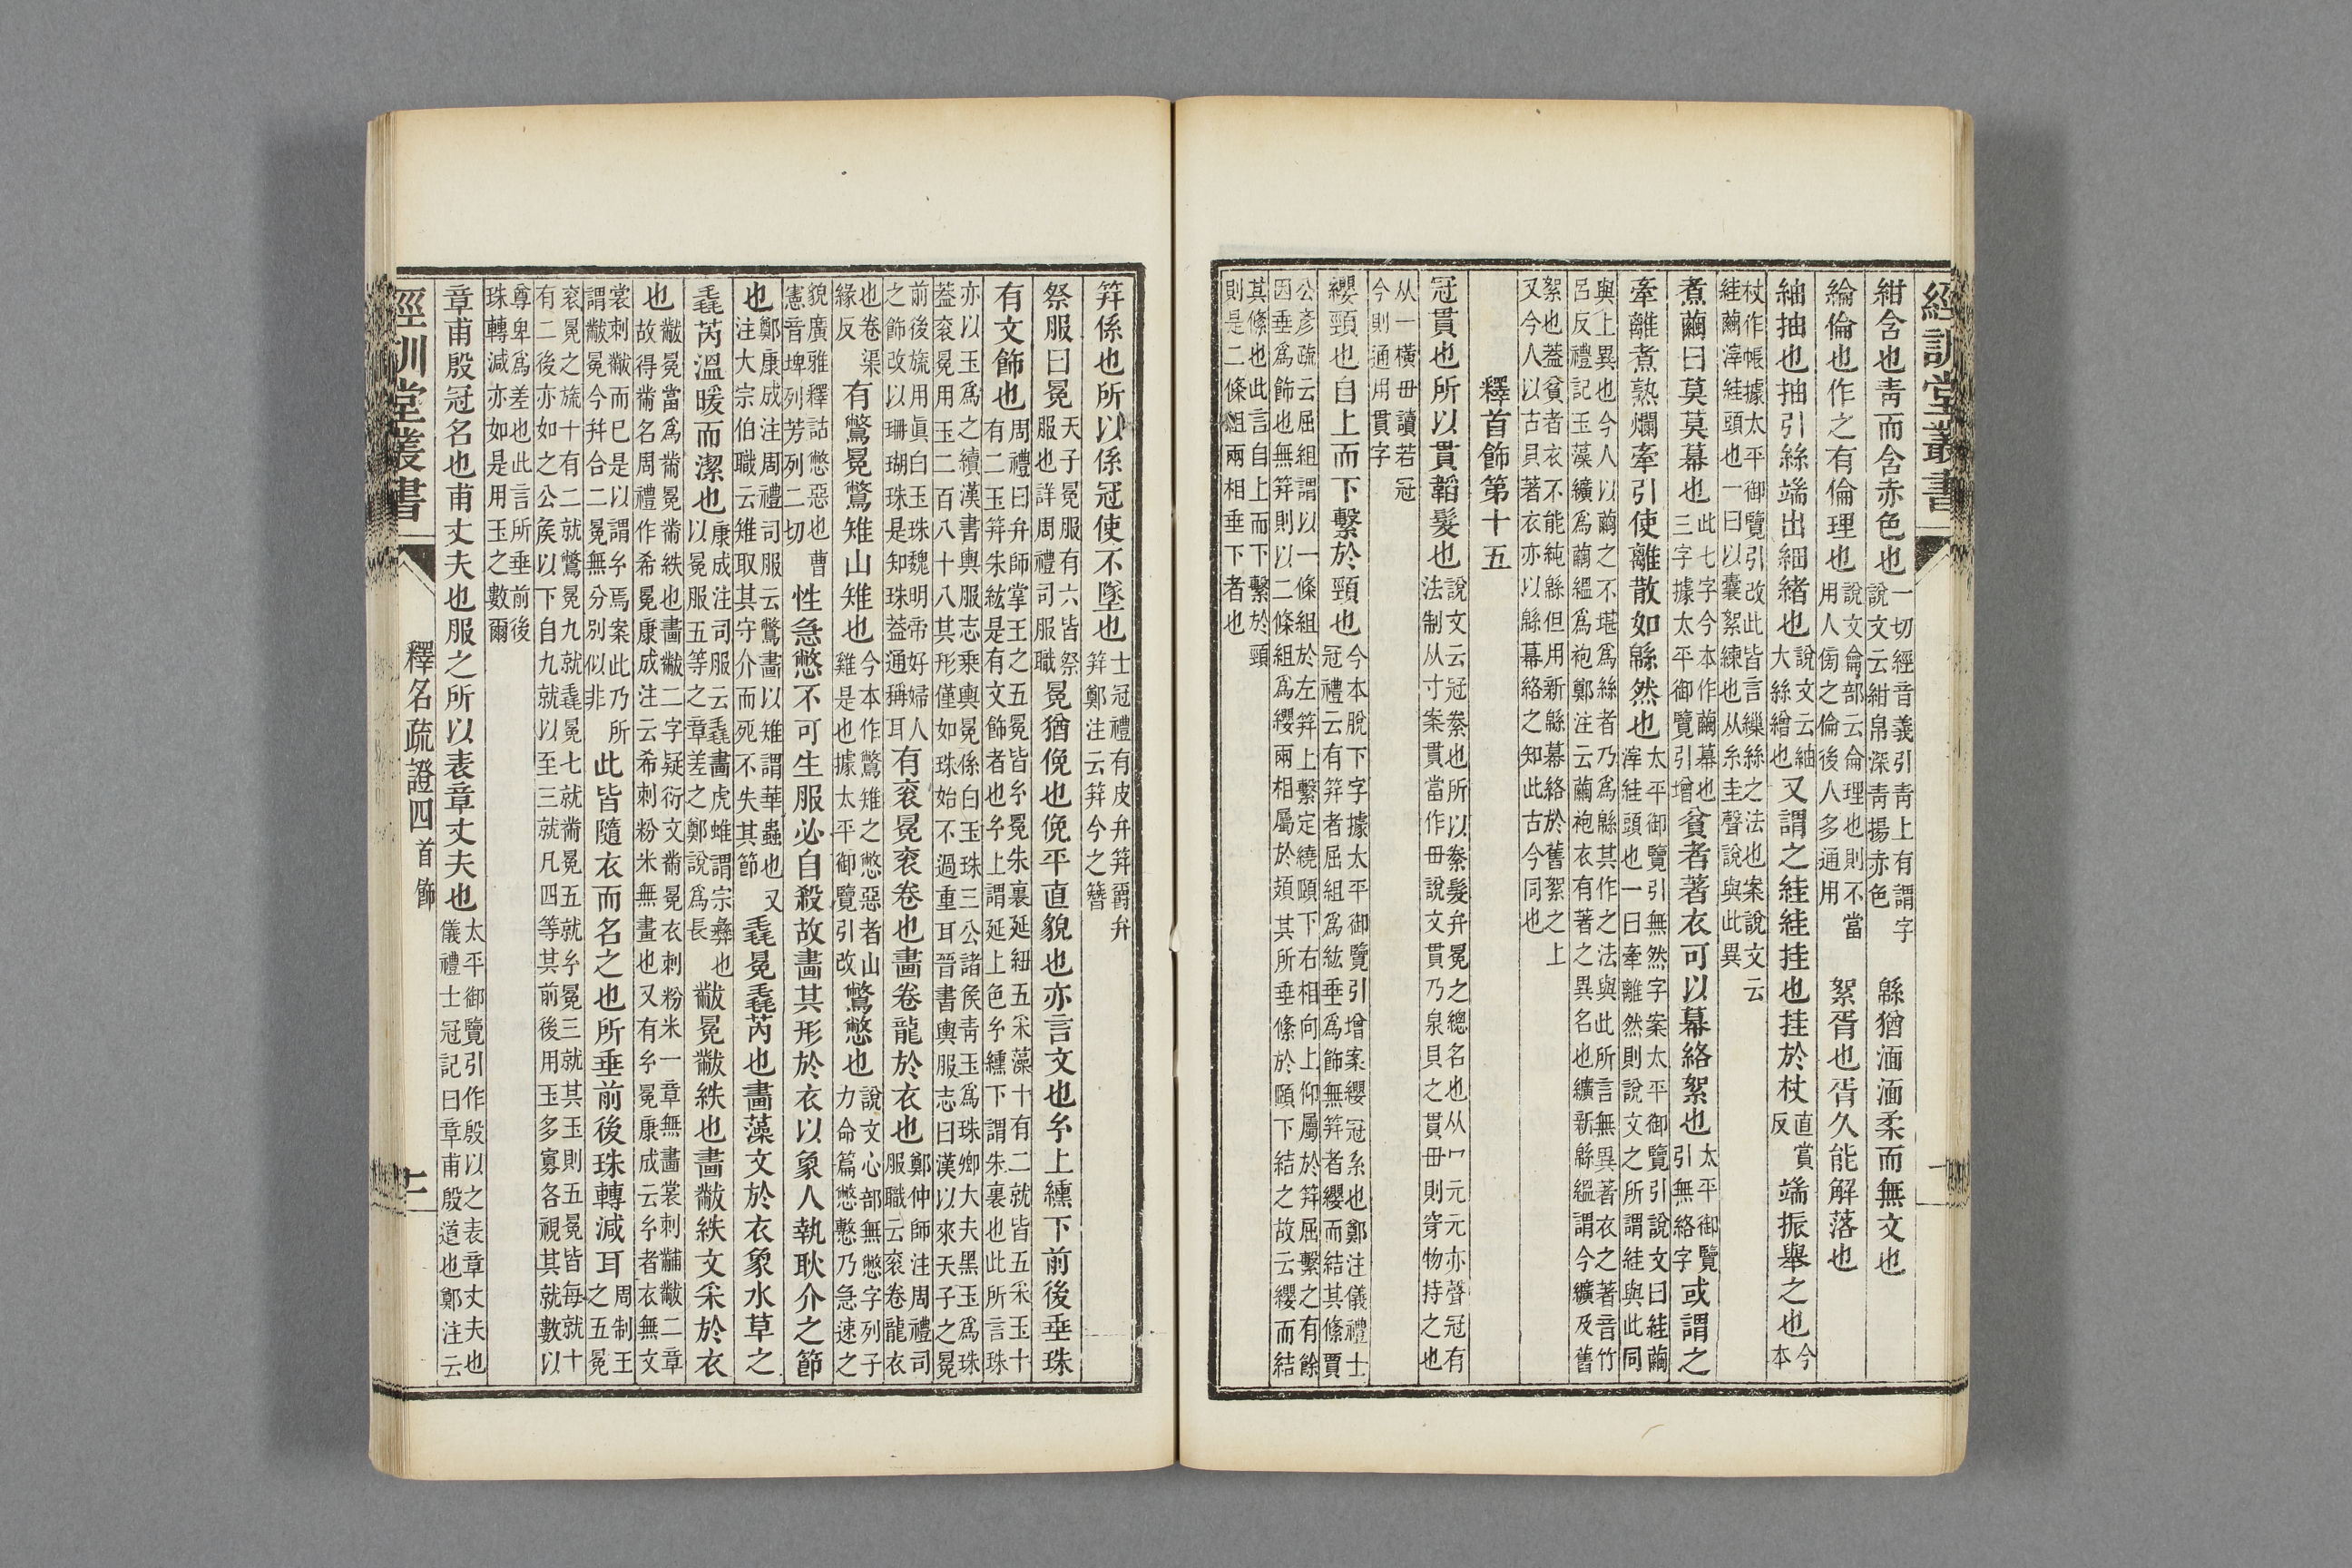 經訓堂叢書
紺含也青而含赤色也一切經音義引青上有謂字說文云紺帛深青揚赤色 緜猶湎湎柔而無文也
綸倫也作之有倫理也說文侖部云侖理也則不當用人傍之倫後人多通用 絮胥也胥久能解落也
紬抽也抽引絲端出細緒也說文云紬大絲繒也又謂之絓絓挂也挂於杖直賞反端振舉之也今本
杖作帳據太平御覽引改此皆言繅絲之法也案說文云絓繭滓絓頭也一曰以囊絮練也从糸圭聲說與此異
煮繭曰莫莫幕也此七字今本作繭幕也三字據太平御覽引增貧者著衣可以幕絡絮也太平御覽引無絡字或謂之
牽離煮熟爛牽引使離散如緜然也太平御覽引無然字案太平御覽引說文曰絓繭滓絓頭也一曰牽離然則說文之所謂絓與此同
與上異也今人以繭之不堪爲絲者乃爲緜其作之法與此所言無異著衣之著音竹呂反禮記玉藻纊爲繭縕爲袍鄭注云繭袍衣有著之異名也纊新緜縕謂今纊及舊
絮也葢貧者衣不能純緜但用新緜幕絡於舊絮之上又今人以古貝著衣亦以緜幕絡之知此古今同也
釋首飾第十五
冠貫也所以貫韜髮也說文云冠絭也所以絭髮弁冕之總名也从冖元元亦聲冠有法制从寸案貫當作毌說文貫乃泉貝之貫毌則穿物持之也
从一橫毌讀若冠今則通用貫字
纓頸也自上而下繫於頸也今本脫下字據太平御覽引增案纓冠系也鄭注儀禮士冠禮云有笄者屈組爲紘垂爲飾無笄者纓而結其絛賈
公彥疏云屈組謂以一條組於左笄上繫定繞頤下右相向上仰屬於笄屈繫之有餘因垂爲飾也無笄則以二條組爲纓兩相屬於頍其所垂絛於頤下結之故云纓而結
其絛也此言自上而下繫於頸則是二條組兩相垂下者也
笄係也所以係冠使不墜也士冠禮有皮弁笄爵弁笄鄭注云笄今之簪
祭服曰冕天子冕服有六皆祭服也詳周禮司服職冕猶俛也俛平直貌也亦言文也玄上纁下前後垂珠
有文飾也周禮曰弁師掌王之五冕皆玄冕朱裏延紐五采藻十有二就皆五采玉十有二玉笄朱紘是有文飾者也玄上謂延上色玄纁下謂朱裏也此所言珠
亦以玉爲之續漢書輿服志乘輿冕係白玉珠三公諸矦青玉爲珠卿大夫黑玉爲珠葢衮冕用玉二百八十八其形僅如珠始不過重耳晉書輿服志曰漢以來天子之冕
前後旒用眞白玉珠魏明帝好婦人之飾改以珊瑚珠是知珠葢通稱耳有衮冕衮卷也畫卷龍於衣也鄭仲師注周禮司服職云衮卷龍衣
也卷渠緣反 有鷩冕鷩雉山雉也今本作鷩雉之憋惡者山雞是也據太平御覽引改鷩憋也說文心部無憋字列子力命篇憋憨乃急速之
貌廣雅釋詁憋惡也曹憲音埤列芳列二切性急憋不可生服必自殺故畫其形於衣以象人執耿介之節
也鄭康成注周禮司服云鷩畫以雉謂華蟲也又注大宗伯職云雉取其守介而死不失其節毳冕毳芮也畫藻文於衣象水草之
毳芮溫暖而潔也康成注司服云毳畫虎蜼謂宗彝也以冕服五等之章差之鄭說爲長黻冕黻紩也畫黻紩文采於衣
也黻冕當爲黹冕黹紩也畫黻二字疑衍文黹冕衣刺粉米一章無畫裳刺黼黻二章故得黹名周禮作希冕康成注云希刺粉米無畫也又有玄冕康成云玄者衣無文
裳刺黻而已是以謂玄焉案此乃所謂黻冕今幷合二冕無分別似非此皆隨衣而名之也所垂前後珠轉減耳周制王之五冕
衮冕之旒十有二就鷩冕九就毳冕七就黹冕五就玄冕三就其玉則五冕皆每就十有二後亦如之公矦以下自九就以至三就凡四等其前後用玉多寡各視其就數以
尊卑爲差也此言所垂前後珠轉減亦如是用玉之數爾
章甫殷冠名也甫丈夫也服之所以表章丈夫也太平御覽引作殷以之表章丈夫也儀禮士冠記曰章甫殷道也鄭注云
經訓堂叢書
釋名疏證四 首飾